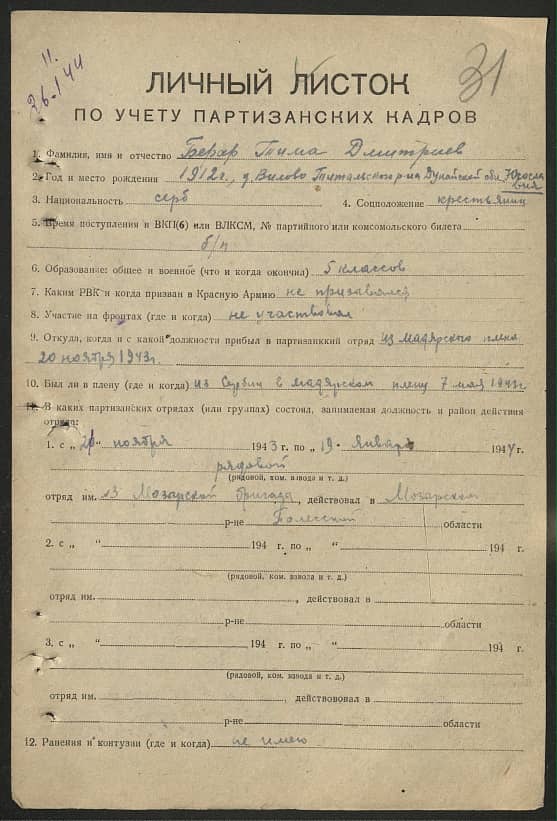 11.
26-1 44
31
ЛИЧНЫЙ ЛИСТОК
ПО УЧЕТУ ПАРТИЗАНСКИХ КАДРОВ
1. Фамилия, имя и отчество Берар Тима Дмитриев
2. Год и место рождения 1912г., д. Вилово Титальского р-на Дунайской обл. Югосла
вия
3. Национальность серб 4. Соцположение крестьянин
5. Время поступления в ВКП(б) или ВЛКСМ, № партийного или комсомольского билета
б/п
6. Образование: общее и военное (что и когда окончил) 5 классов
7. Каким РВК и когда призван в Красную Армию не призавался
8. Участие на фронтах (где и когда) не участвовал
9. Откуда, когда и с какой должности прибыл в партизанкий отряд из мадярского плена
20 ноября 1943г.
10. Был ли в плену (где и когда) из Сербии в мадярском плену 7 мая 1943г
11. В каких партизанских отрядах (или группах) состоял, занимаемая должность и район действия
отряда:
1. с „20" ноября 1943 г. по „19" января 1944 г.
рядовой
(рядовой, ком. взвода и т. д.)
отряд им. 13 Мозарской бригада, действовал в Мозарском
р-не Полесской области
2. с „ " 194 г. по „ " 194 г.
(рядовой, ком. взвола и т. д.)
отряд им. , действовал в
р-не области
3. с „ " 194 г. по „ " 194 г.
(рядовой, ком. взвода и т. д.)
отряд им. действовал в
р-не области
12. Ранения и контузии (где и когда) не имею